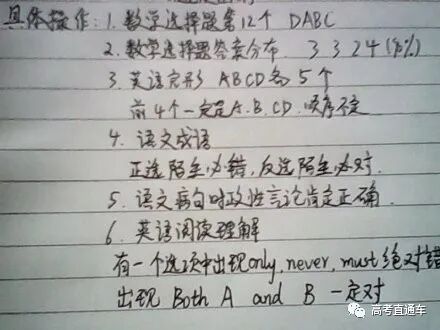 具体操作：1. 数学选择题第12个 DABC
2. 数学选择题答案分布 3 3 2 4 (90%)
3. 英语完形 ABCD各5个
前4个一定是A.B.CD.顺序不定
4. 语文成语
正选陌生必错，反选陌生必对.
5. 语文病句时政性言论肯定正确.
6. 英语阅读理解
有一个选项中出现only, never, must绝对错
出现 Both A and B 一定对
高考直通车